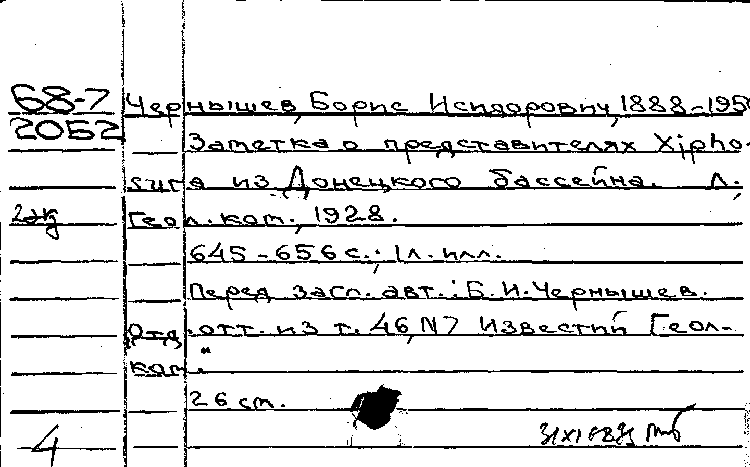 68-7 Чернышев, Борис Исидорович, 1888-195
2052 Заметка о представителях Xipho-
sura из Донецкого бассейна. Л.,
2 экз Геол. ком., 1928.
645-656 с.; 1 л. илл.
Перед загл. авт.: Б. И. Чернышев.
Отд. отт. из т. 46, N7 "Известий Геол-
ком."
26 см.
4